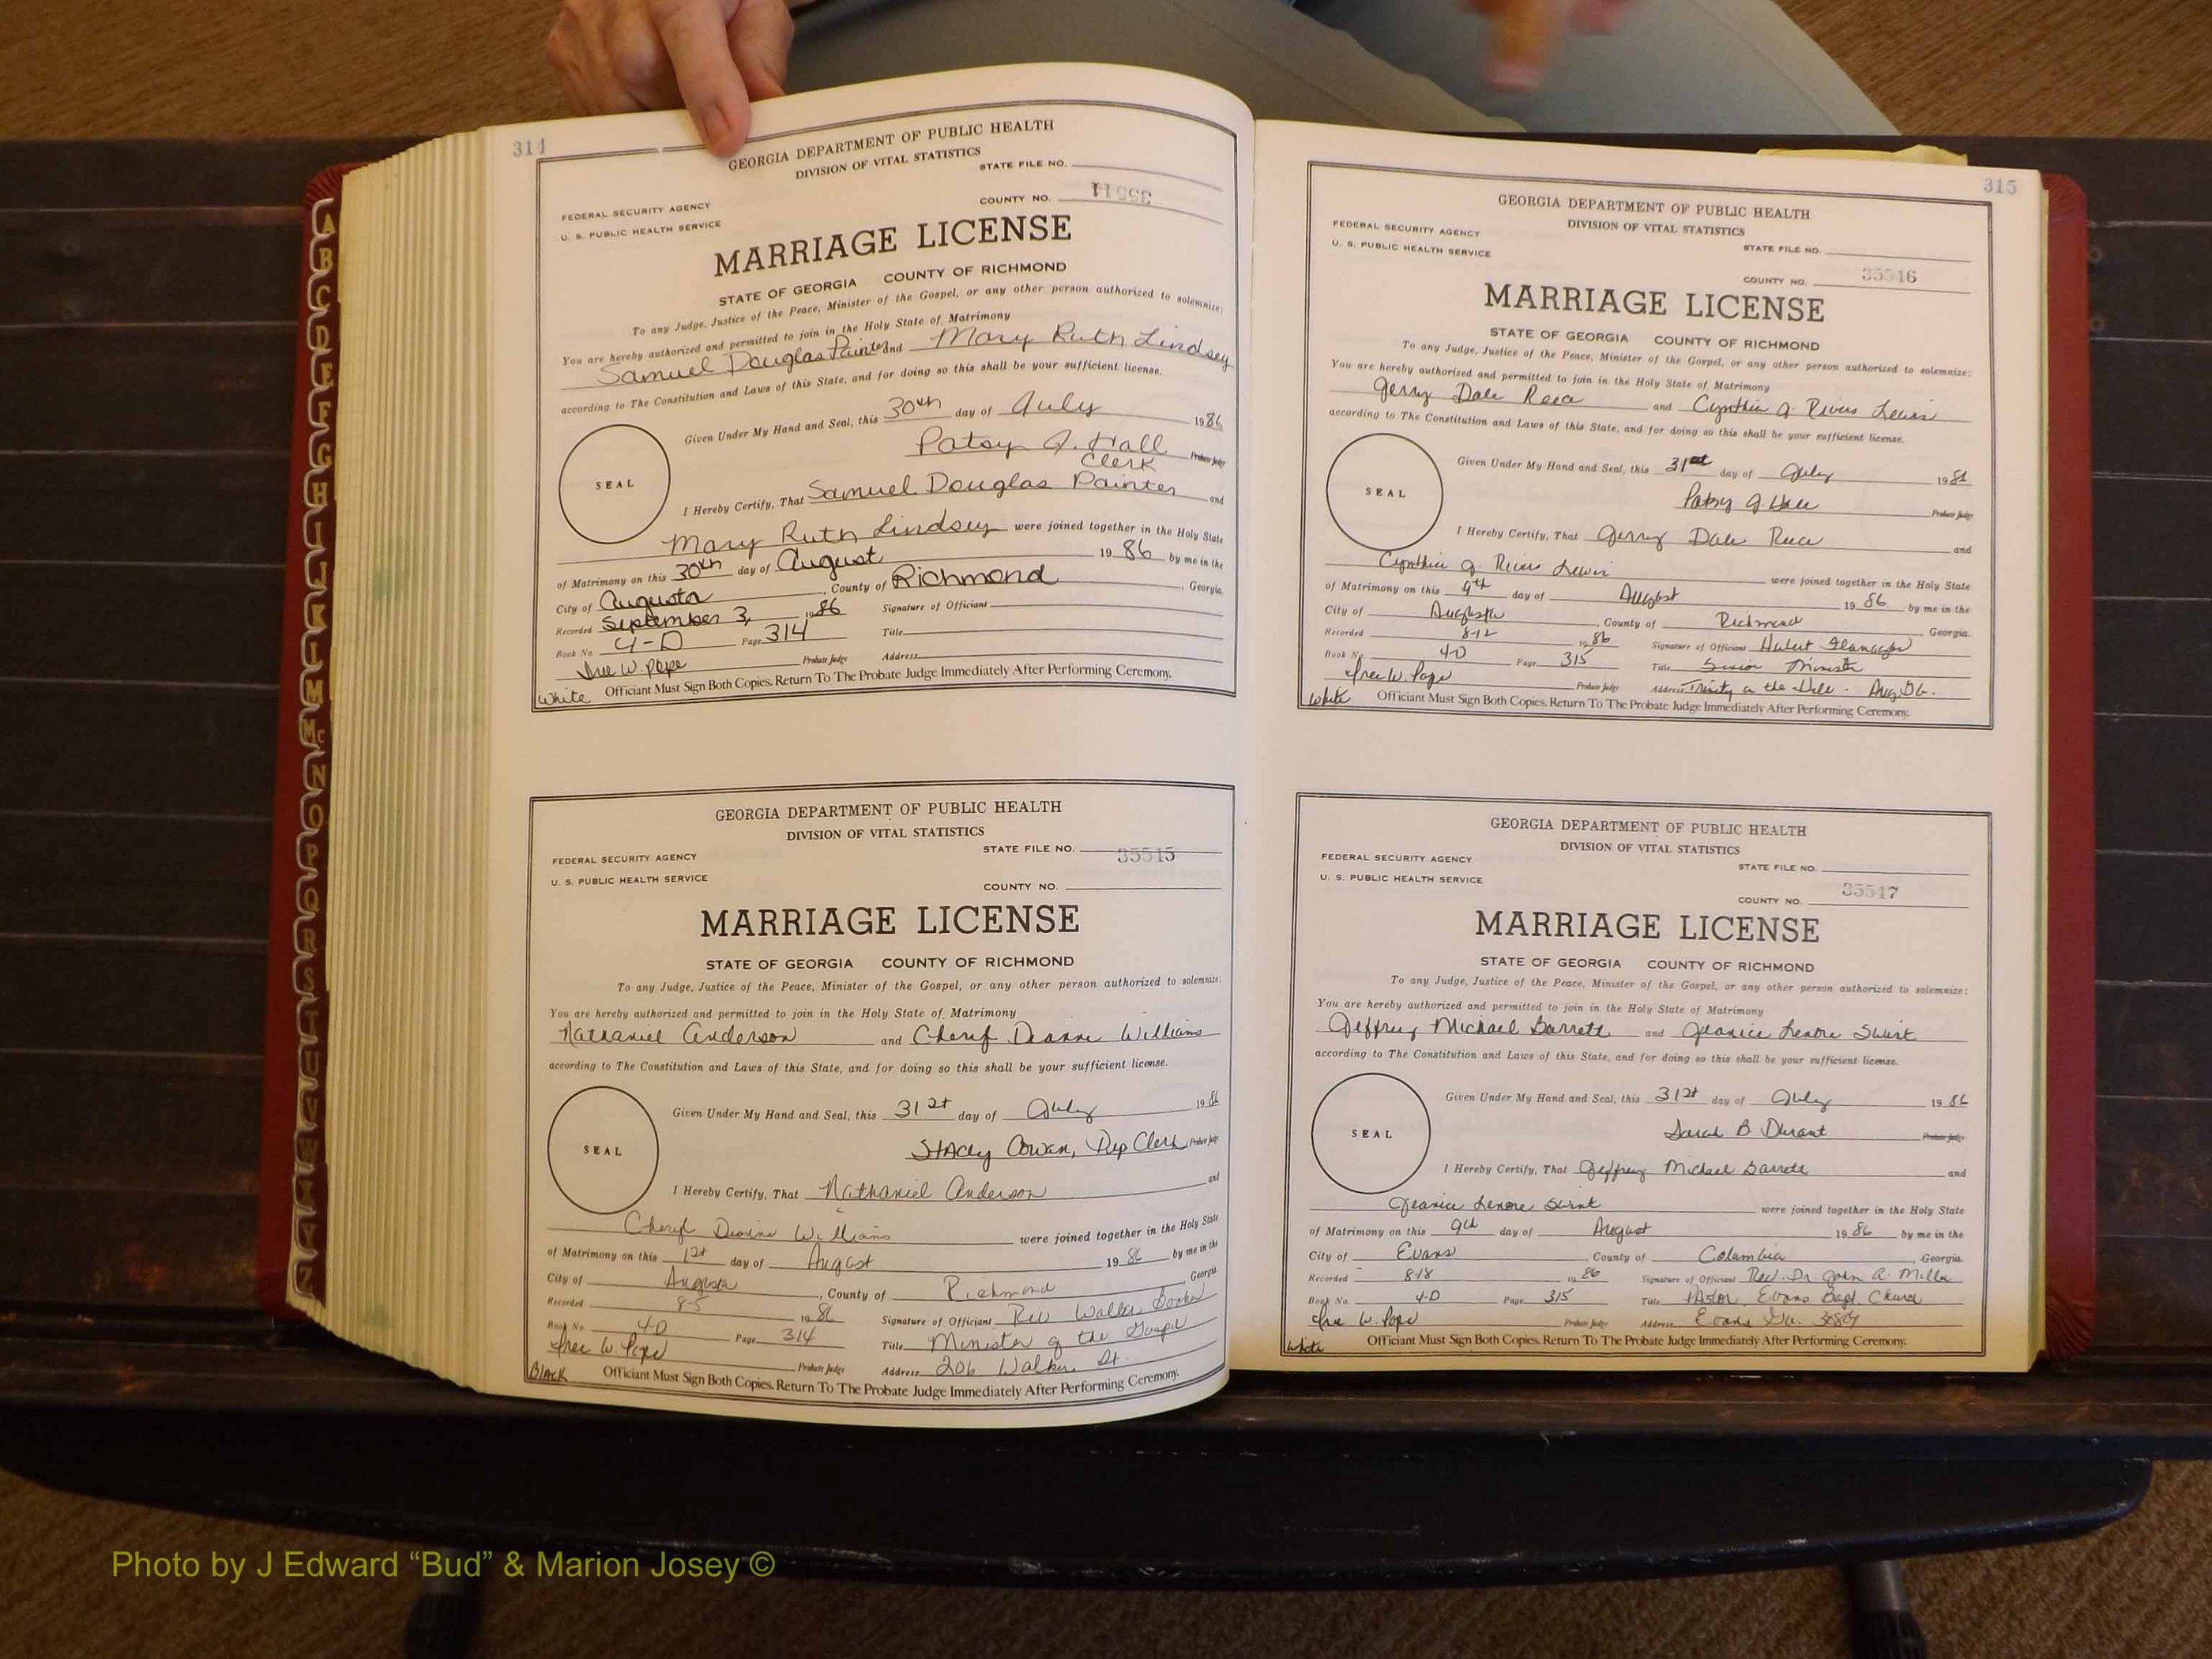 314
GEORGIA DEPARTMENT OF PUBLIC HEALTH
DIVISION OF VITAL STATISTICS
STATE FILE NO.
FEDERAL SECURITY AGENCY
COUNTY NO. 35514
U. S. PUBLIC HEALTH SERVICE
MARRIAGE LICENSE
STATE OF GEORGIA COUNTY OF RICHMOND
To any Judge, Justice of the Peace, Minister of the Gospel, or any other person authorized to solemnize:
You are hereby authorized and permitted to join in the Holy State of Matrimony
Samuel Douglas Painter and Mary Ruth Lindsey
according to The Constitution and Laws of this State, and for doing so this shall be your sufficient license.
Given Under My Hand and Seal, this 30th day of July 1986
Patsy J. Hall Probate Judge
Clerk
SEAL
I Hereby Certify, That Samuel Douglas Painter and
Mary Ruth Lindsey were joined together in the Holy State
of Matrimony on this 30th day of August 1986 by me in the
City of Augusta, County of Richmond, Georgia.
Recorded September 3, 1986 Signature of Officiant
Book No. 4-D Page 314 Title
Probate Judge Address
W. Pope
White Officiant Must Sign Both Copies. Return To The Probate Judge Immediately After Performing Ceremony.
GEORGIA DEPARTMENT OF PUBLIC HEALTH
DIVISION OF VITAL STATISTICS
STATE FILE NO. 35515
FEDERAL SECURITY AGENCY
U. S. PUBLIC HEALTH SERVICE
COUNTY NO.
MARRIAGE LICENSE
STATE OF GEORGIA COUNTY OF RICHMOND
To any Judge, Justice of the Peace, Minister of the Gospel, or any other person authorized to solemnize:
You are hereby authorized and permitted to join in the Holy State of Matrimony
Nathaniel Anderson and Cheryl Deanne Williams
according to The Constitution and Laws of this State, and for doing so this shall be your sufficient license.
Given Under My Hand and Seal, this 31st day of July 1986
Stacey Cowan, Dep Clerk Probate Judge
SEAL
I Hereby Certify, That Nathaniel Anderson and
Cheryl Williams were joined together in the Holy State
of Matrimony on this 1st day of August 1986 by me in the
City of Augusta, County of Richmond, Georgia.
Recorded 8-5 1986 Signature of Officiant Rev Walter Booker
Book No. 4D Page 314 Title Minister of the Gospel
W. Pope Probate Judge Address 206 Walker St.
BLACK Officiant Must Sign Both Copies. Return To The Probate Judge Immediately After Performing Ceremony.
315
GEORGIA DEPARTMENT OF PUBLIC HEALTH
DIVISION OF VITAL STATISTICS
FEDERAL SECURITY AGENCY
STATE FILE NO.
U. S. PUBLIC HEALTH SERVICE
COUNTY NO. 35516
MARRIAGE LICENSE
STATE OF GEORGIA COUNTY OF RICHMOND
To any Judge, Justice of the Peace, Minister of the Gospel, or any other person authorized to solemnize:
You are hereby authorized and permitted to join in the Holy State of Matrimony
Jerry Dale Reece and Cynthia J. Rivers Lewis
according to The Constitution and Laws of this State, and for doing so this shall be your sufficient license.
Given Under My Hand and Seal, this 31st day of July 1986
Patsy J. Hall
Probate Judge
SEAL
I Hereby Certify, That Jerry Dale Reece and
Cynthia J. Rivers Lewis were joined together in the Holy State
of Matrimony on this 9th day of August 1986 by me in the
City of Augusta, County of Richmond, Georgia.
Recorded 8-12 1986 Signature of Officiant Hubert Flanagan
Book No. 4D Page 315 Title Senior Minister
W. Pope Probate Judge Address Trinity on the Hill - Aug, Ga.
White Officiant Must Sign Both Copies. Return To The Probate Judge Immediately After Performing Ceremony.
GEORGIA DEPARTMENT OF PUBLIC HEALTH
DIVISION OF VITAL STATISTICS
FEDERAL SECURITY AGENCY
STATE FILE NO.
U. S. PUBLIC HEALTH SERVICE
COUNTY NO. 35517
MARRIAGE LICENSE
STATE OF GEORGIA COUNTY OF RICHMOND
To any Judge, Justice of the Peace, Minister of the Gospel, or any other person authorized to solemnize:
You are hereby authorized and permitted to join in the Holy State of Matrimony
Jeffrey Michael Barrett and Jeanice Lenore Swint
according to The Constitution and Laws of this State, and for doing so this shall be your sufficient license.
Given Under My Hand and Seal, this 31st day of July 1986
Sarah B Durant Probate Judge
SEAL
I Hereby Certify, That Jeffrey Michael Barrett and
Jeanice Lenore Swint were joined together in the Holy State
of Matrimony on this 9th day of August 1986 by me in the
City of Evans, County of Columbia, Georgia.
Recorded 8-18 1986 Signature of Officiant Rev. Dr. John A. Miller
Book No. 4-D Page 315 Title Pastor, Evans Bapt. Church
W. Pope Probate Judge Address Evans Ga. 30809
White Officiant Must Sign Both Copies. Return To The Probate Judge Immediately After Performing Ceremony.
A
B
C
D
E
F
G
H
I
J
K
L
M
Mc
N
O
P
Q
R
S
T
U
V
W
X
Y
Z
Photo by J Edward “Bud” & Marion Josey ©